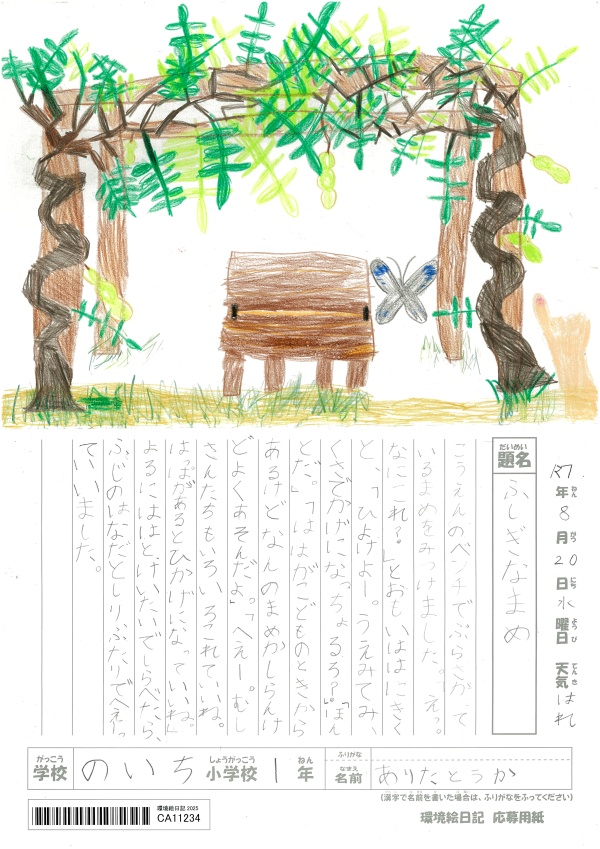 R7年8月20日水曜日 天気はれ
ねん
がつ
にち
ようび
てんき
だいめい
題名
ふしぎなまめ
こうえんのベンチでぶらさがって
いるまめをみつけました。「えっ
なにこれ?」とおもいははにきく
と、「ひよけよー。うえみてみ、
くさでかげになっちょるろ?」「ほん
とだ。」「ははがこどものときから
あるけどなんのまめかしらんけ
どよくあそんだよ。」「へえー。むし
さんたちもいろいろこれていいね。
はっぱがあるとひかげになっていいね。」
よるにははと、けいたいでしらべたら、
ふじのはなだとしりふたりでへえっ
ていいました。
がっこう
学校
のいち
しょうがっこう
小学校
1
ねん
年
ふりがな
なまえ
名前
ありたとうか
(漢字で名前を書いた場合は、ふりがなをふってください)
環境絵日記2025
CA11234
環境絵日記 応募用紙